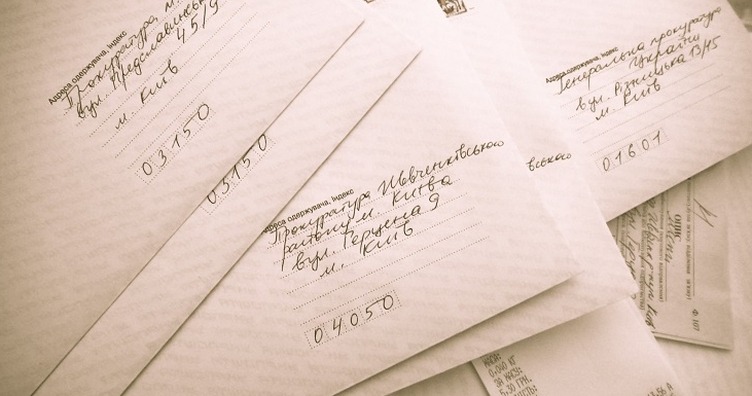 Адреса одержувача, індекс
Прокуратура м.
вул. Предславинська
45/9
м. Київ
03150
03150
Адреса одержувача, індекс
Прокуратура Шевченківського
району м. Києва
вул. Герцена 9
м. Київ
04050
вського
Адреса одержувача, індекс
Генеральна прокуратура
України
вул. Різницька 13/15
м. Київ
01601
ОПИС
Ф. 107
0,040 КГ
ЗА МАСУ:
5.30 ГРН.